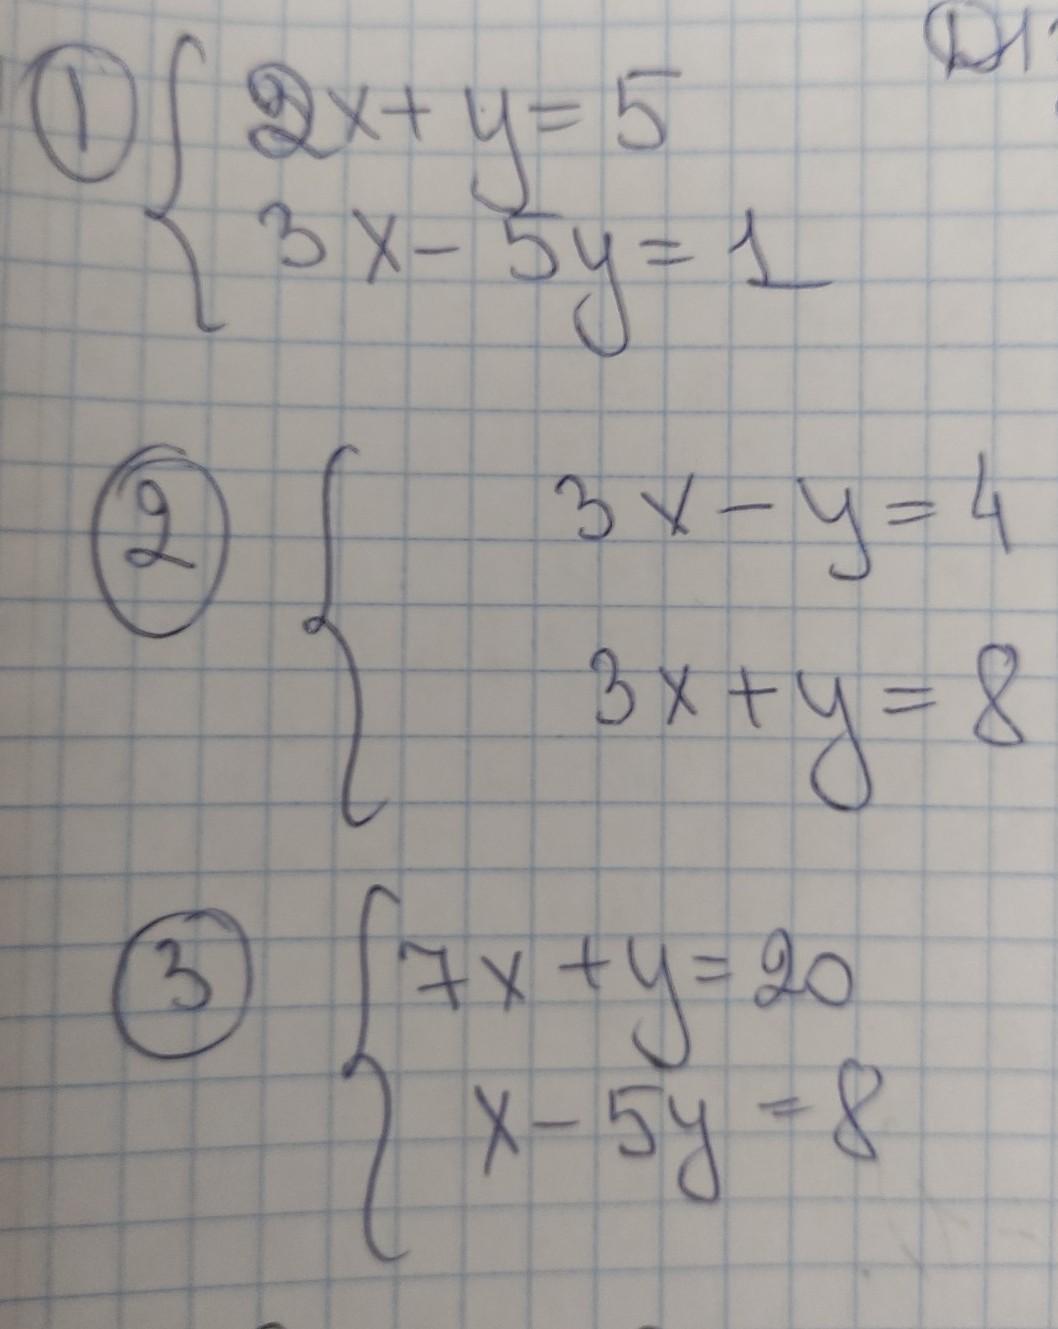 ① 2x + y = 5
3x - 5y = 1
② 3x - y = 4
3x + y = 8
③ 7x + y = 20
x - 5y = 8